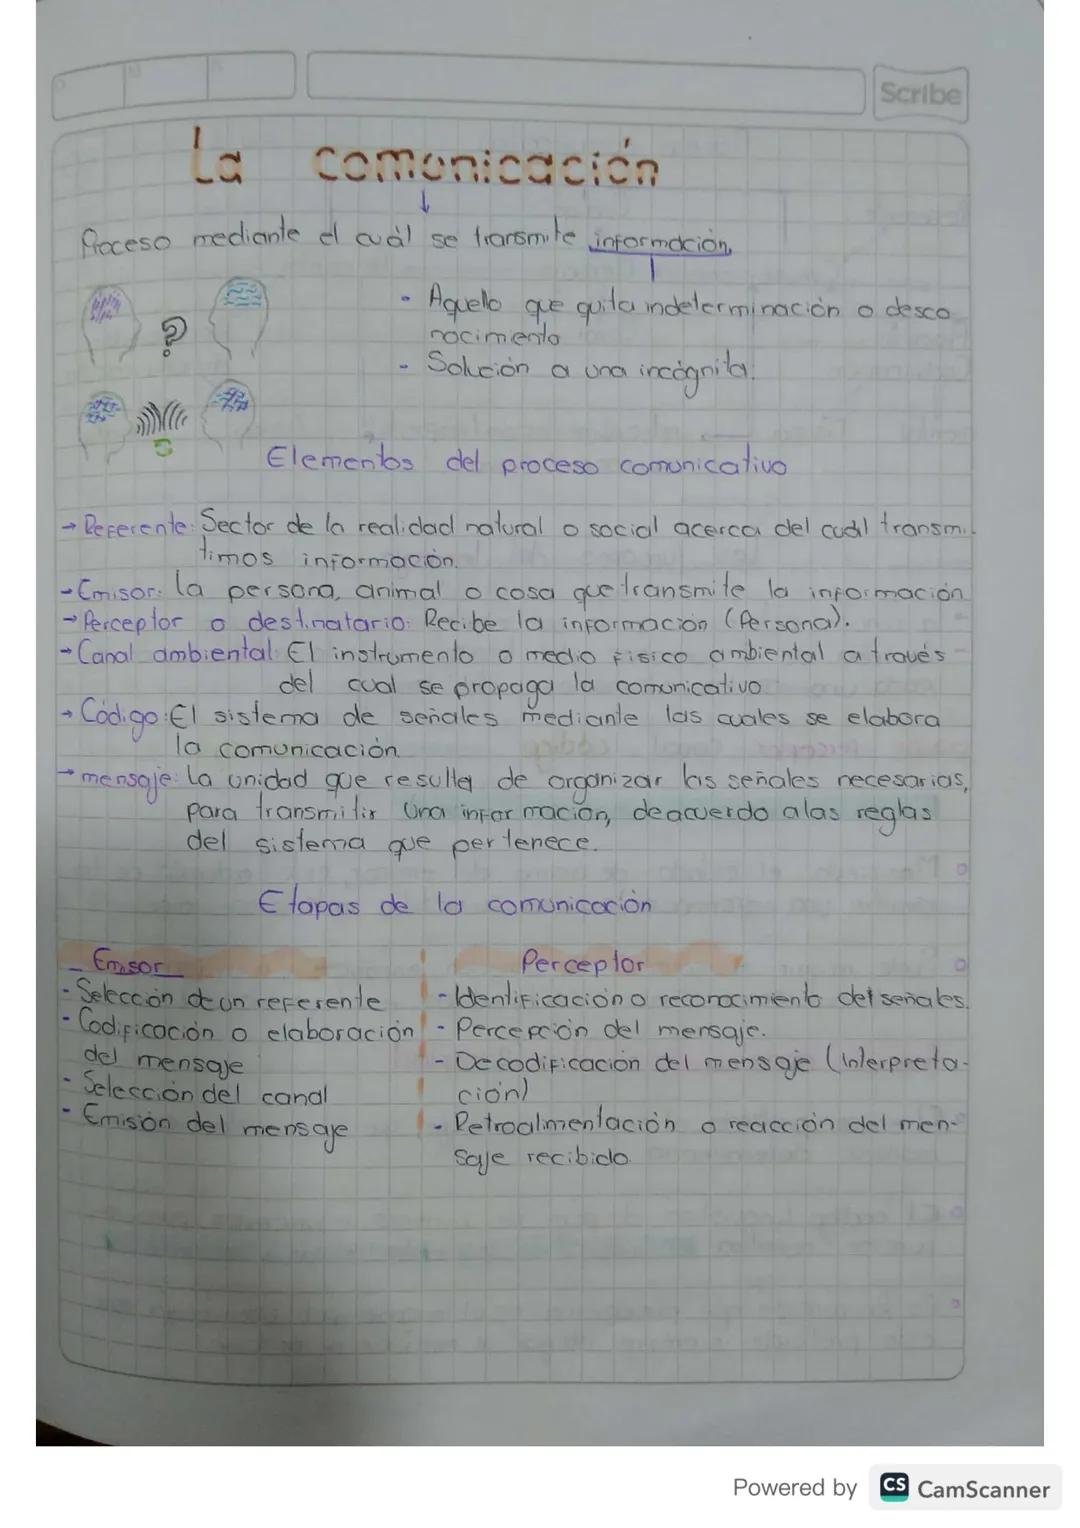 Scribe
La comunicación
Proceso mediante el cuál se transmite información
- Aquello que quita indeterminación o desco
nocimiento
- Solución a una incógnita.
?
Elementos del proceso comunicativo
→ Referente: Sector de la realidad natural o social acerca del cual transmi-
timos información.
→ Emisor: la persona, animal o cosa que transmite la información
→ Perceptor o destinatario: Recibe la información (Persona).
→ Canal ambiental: El instrumento o medio fisico ambiental a través
del cual se propaga la comunicativo
→ Código: El sistema de señales mediante las cuales se elabora
la comunicación
→ mensaje: La unidad que resulta de organizar las señales necesarias,
para transmitir una información, deacuerdo a las reglas
del sistema que pertenece.
Etapas de la comunicación
Emisor
- Selección de un referente
- Codificación o elaboración
del mensaje
- Selección del canal
- Emisión del mensaje
Perceptor
- Identificación o reconocimiento del señales.
- Percepción del mensaje.
- Decodificación del mensaje (Interpreta-
ción)
- Retroalimentación o reacción del men-
saje recibido
Powered by CS CamScanner